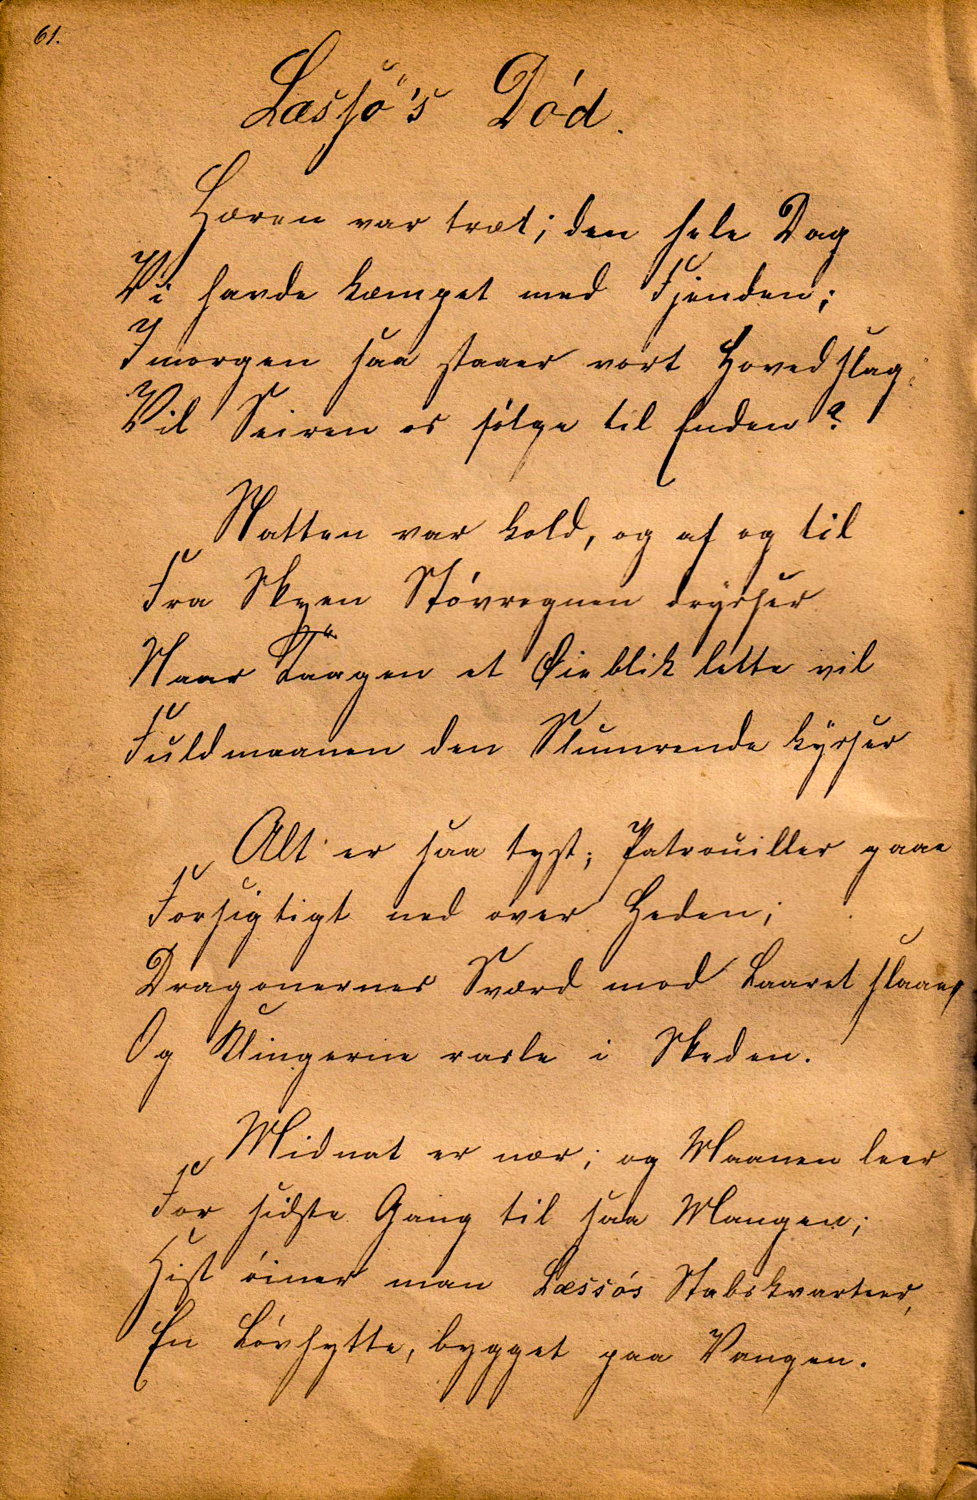 61.
Læssø's Død.
Hæren var træt; den hele Dag
Vi havde kæmpet med Fjenden;
Imorgen saa staaer vort Hovedslag,
Vil Seiren os følge til Enden?
Natten var kold, og af og til
Fra Skyen Støvregnen drysser
Naar Taagen et Øieblik lette vil
Fuldmaanen den Slumrende kysser
Alt er saa tyst; Patrouiller gaae
Forsigtigt ned over Heden;
Dragonernes Sværd mod Laaret slaae,
Og Klingerne rasle i Skeden.
Midnat er nær; og Maanen leer
For sidste Gang til saa Mangen;
Hist øiner man Læssøs Stabskvarteer,
En Løvhytte, bygget paa Vangen.